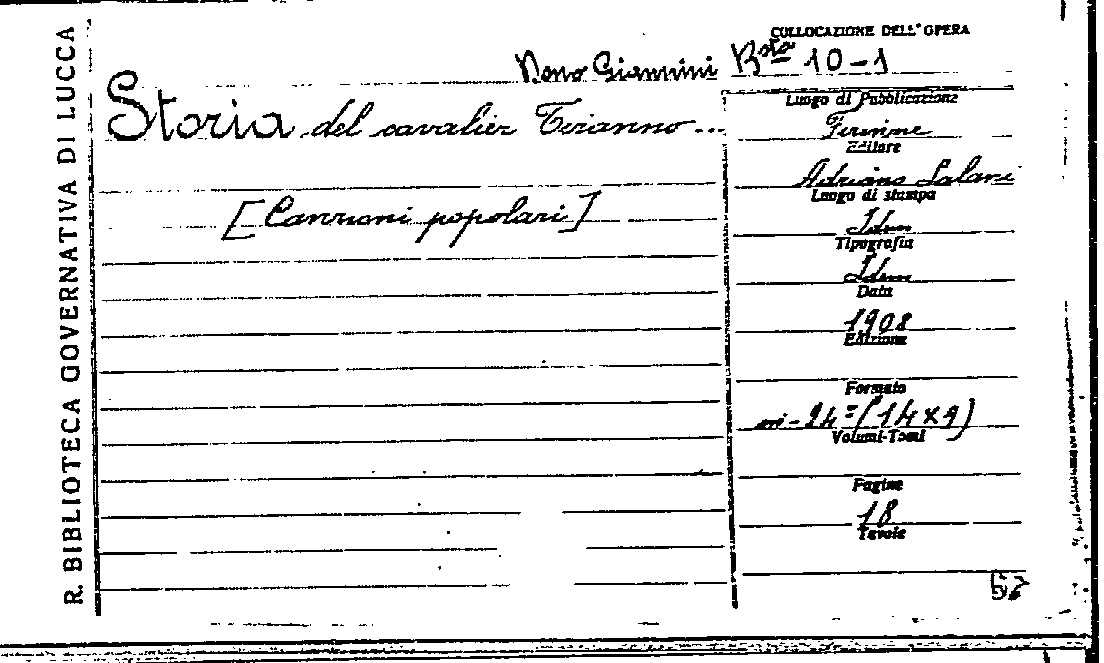 R. BIBLIOTECA GOVERNATIVA DI LUCCA
COLLOCAZIONE DELL'OPERA
Dono Giannini Bsta 10-1
Storia del cavalier Tiranno...
[Canzoni popolari]
Luogo di Pubblicazione
Firenze
Editore
Adriano Salani
Luogo di stampa
Idem
Tipografia
Idem
Data
1908
Edizione
Formato
in-24=(14x9)
Volumi-Tomi
Pagine
18
Tavole